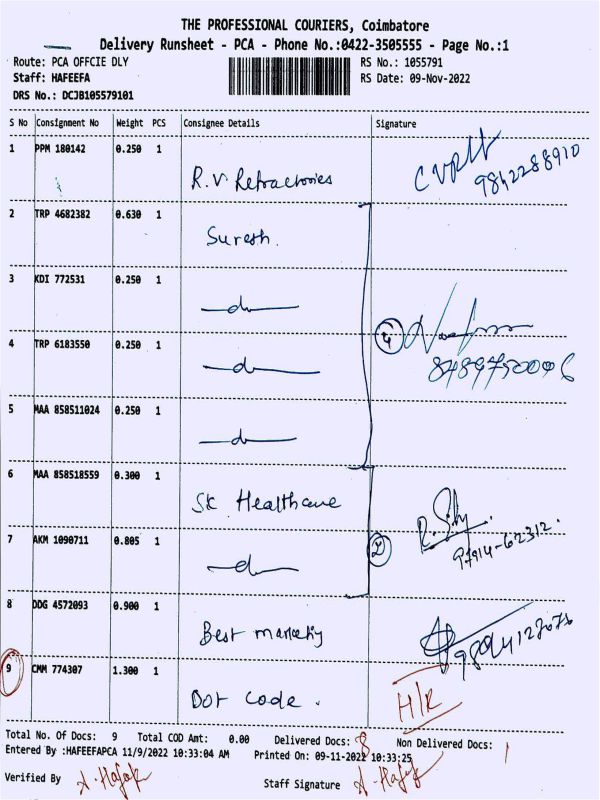 THE PROFESSIONAL COURIERS, Coimbatore
Delivery Runsheet - PCA - Phone No.:0422-3505555 - Page No.:1
Route: PCA OFFCIE DLY RS No.: 1055791
Staff: HAFEEFA RS Date: 09-Nov-2022
DRS No.: DCJB105579101
S No Consignment No Weight PCS Consignee Details Signature
1 PPM 180142 0.250 1
R.V. Refractories 9842288910
2 TRP 4682382 0.630 1
Suresh.
3 KDI 772531 0.250 1
do
4 TRP 6183550 0.250 1 4
do
5 MAA 858511024 0.250 1
do
6 MAA 858518559 0.300 1
SK Healthcare
7 AKM 1090711 0.805 1 2 97914-62312.
do
8 DDG 4572093 0.900 1
Best marketing
9 CMM 774307 1.300 1
Dot code. H/R
Total No. Of Docs: 9 Total COD Amt: 0.00 Delivered Docs: 8 Non Delivered Docs: 1
Entered By :HAFEEFAPCA 11/9/2022 10:33:04 AM Printed On: 09-11-2022 10:33:25
Verified By Staff Signature